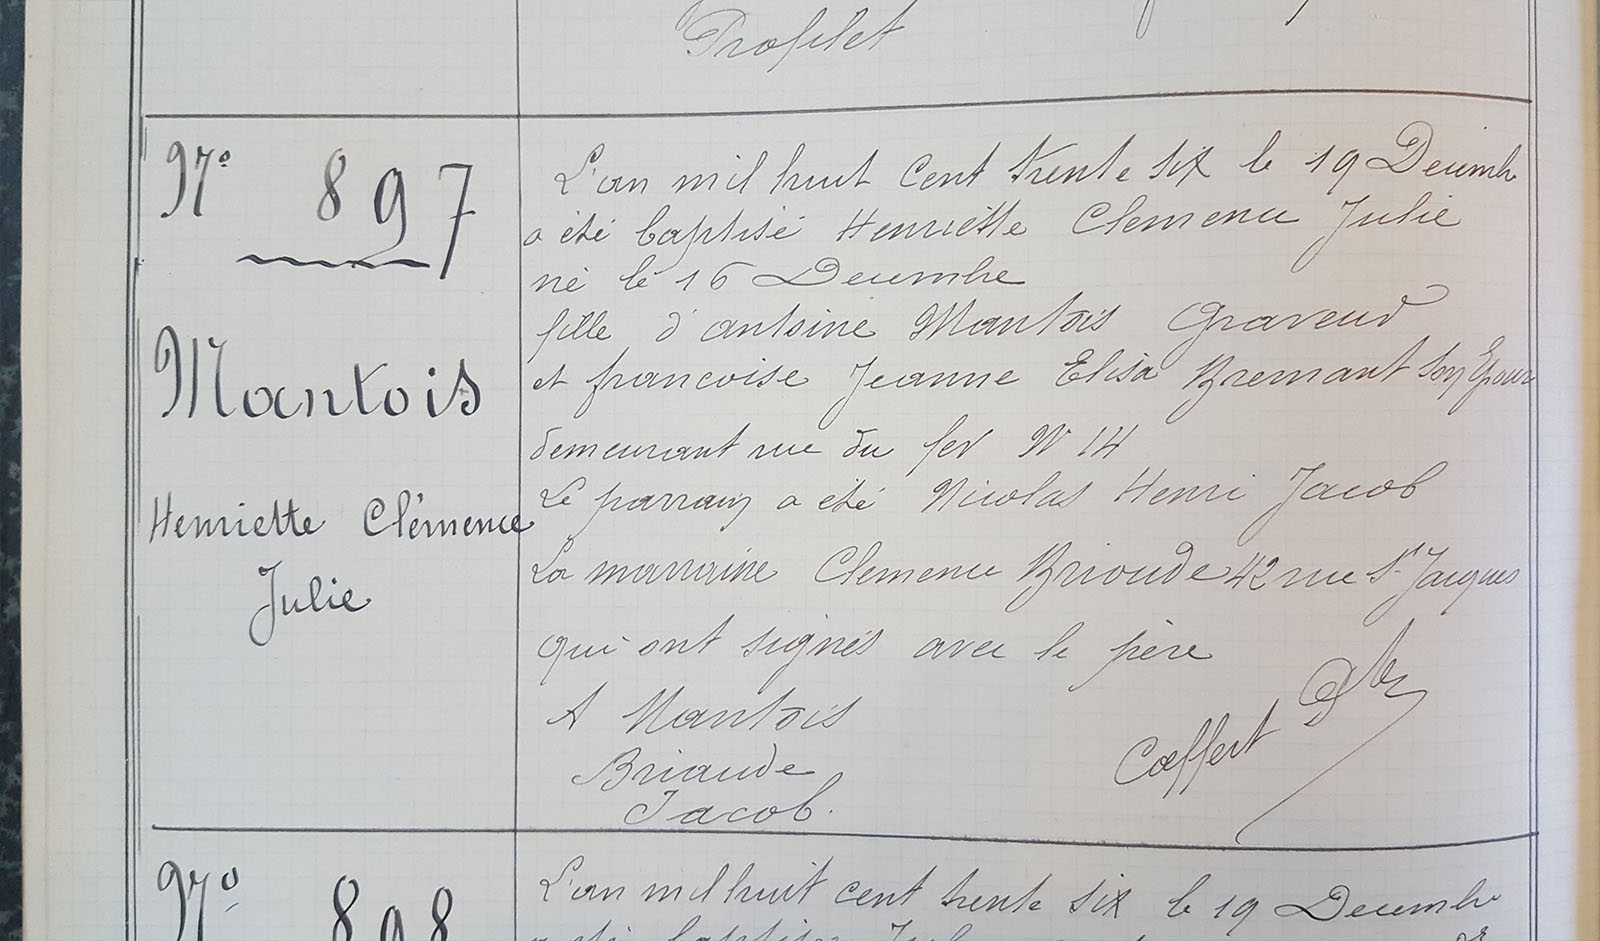 Profilet
N° 897
Mantois
Henriette Clémence
Julie
L'an mil huit cent trente six le 19 Decembre
a été baptisé Henriette Clemence Julie
né le 16 Decembre
fille d'antoine Mantois Graveur
et francoise Jeanne Elisa Bremant son Epouse
demeurant rue du fer N 14
Le parrain a été Nicolas Henri Jacob
La marraine Clemence Brioude 42 rue St Jacques
qui ont signés avec le père
A Mantois
Briaude
Jacob.
Coeffert
N° 898
L'an mil huit cent trente six le 19 Decembre